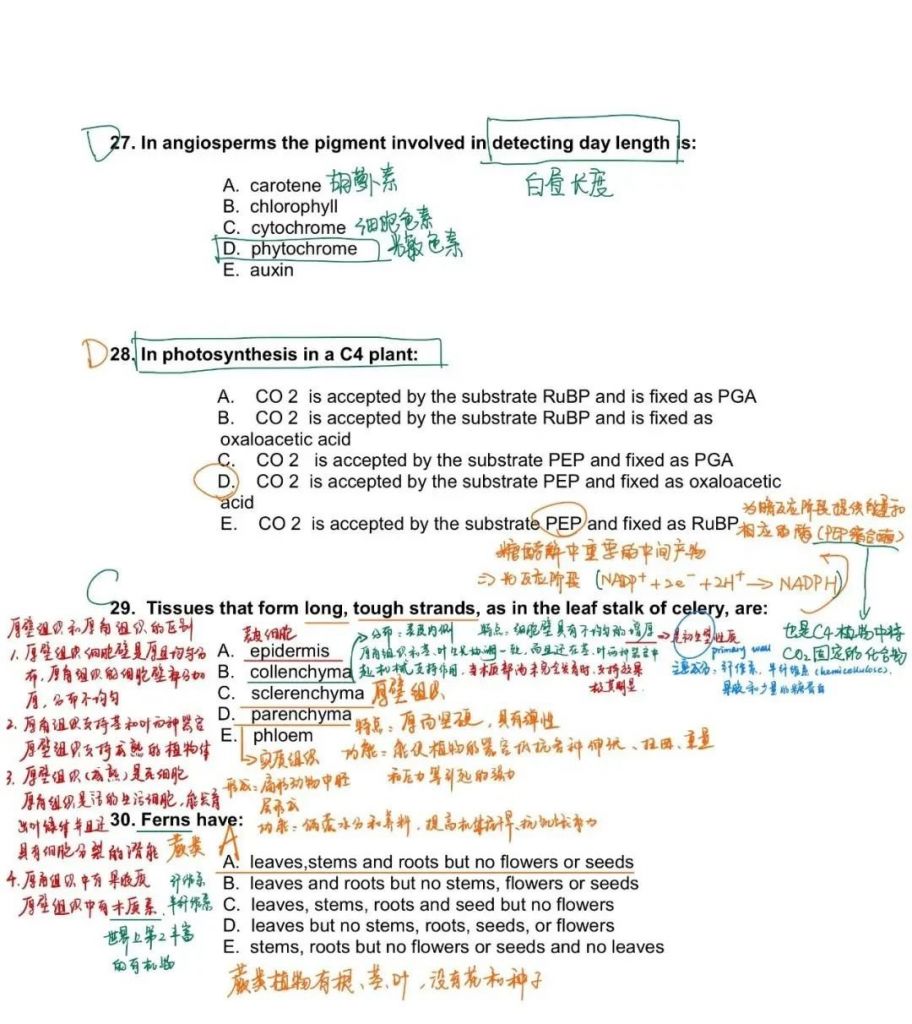 D
27. In angiosperms the pigment involved in detecting day length is:
白昼长度
A. carotene 胡萝卜素
B. chlorophyll
C. cytochrome 细胞色素
D. phytochrome 光敏色素
E. auxin
D
28. In photosynthesis in a C4 plant:
A. CO 2 is accepted by the substrate RuBP and is fixed as PGA
B. CO 2 is accepted by the substrate RuBP and is fixed as
oxaloacetic acid
C. CO 2 is accepted by the substrate PEP and fixed as PGA
D. CO 2 is accepted by the substrate PEP and fixed as oxaloacetic
acid
E. CO 2 is accepted by the substrate PEP and fixed as RuBP
为暗反应阶段提供能量和
相应的酶 (PEP羧合酶)
糖酵解中重要的中间产物
=> 光反应阶段 (NADP⁺ + 2e⁻ + 2H⁺ → NADPH)
也是C4植物中将
CO₂固定的化合物
C
29. Tissues that form long, tough strands, as in the leaf stalk of celery, are:
A. epidermis 表皮细胞
B. collenchyma
C. sclerenchyma 厚壁组织
D. parenchyma
E. phloem
分布：表皮内侧
特点：细胞壁具有不均匀的增厚
primary wall
特点：厚而坚硬，具有弹性
功能：能使植物的器官
实质组织
形成：扁形动物中胚
层形成
厚壁组织和厚角组织的区别
1. 厚壁组织细胞壁是厚且均匀分
布，厚角组织的细胞壁部分加
厚，分布不均匀
2. 厚角组织支持茎和叶而种器官
厚壁组织支持成熟的植物体
3. 厚壁组织(成熟)是死细胞
厚角组织是活的生活细胞，能发育
出叶绿体并且还
具有细胞分裂的潜能
4. 厚角组织中有果胶质
厚壁组织中有木质素
纤维素
半纤维素
世界上第2丰富
的有机物
30. Ferns have:
蕨类
A
A. leaves,stems and roots but no flowers or seeds
B. leaves and roots but no stems, flowers or seeds
C. leaves, stems, roots and seed but no flowers
D. leaves but no stems, roots, seeds, or flowers
E. stems, roots but no flowers or seeds and no leaves
蕨类植物有根、茎、叶，没有花和种子